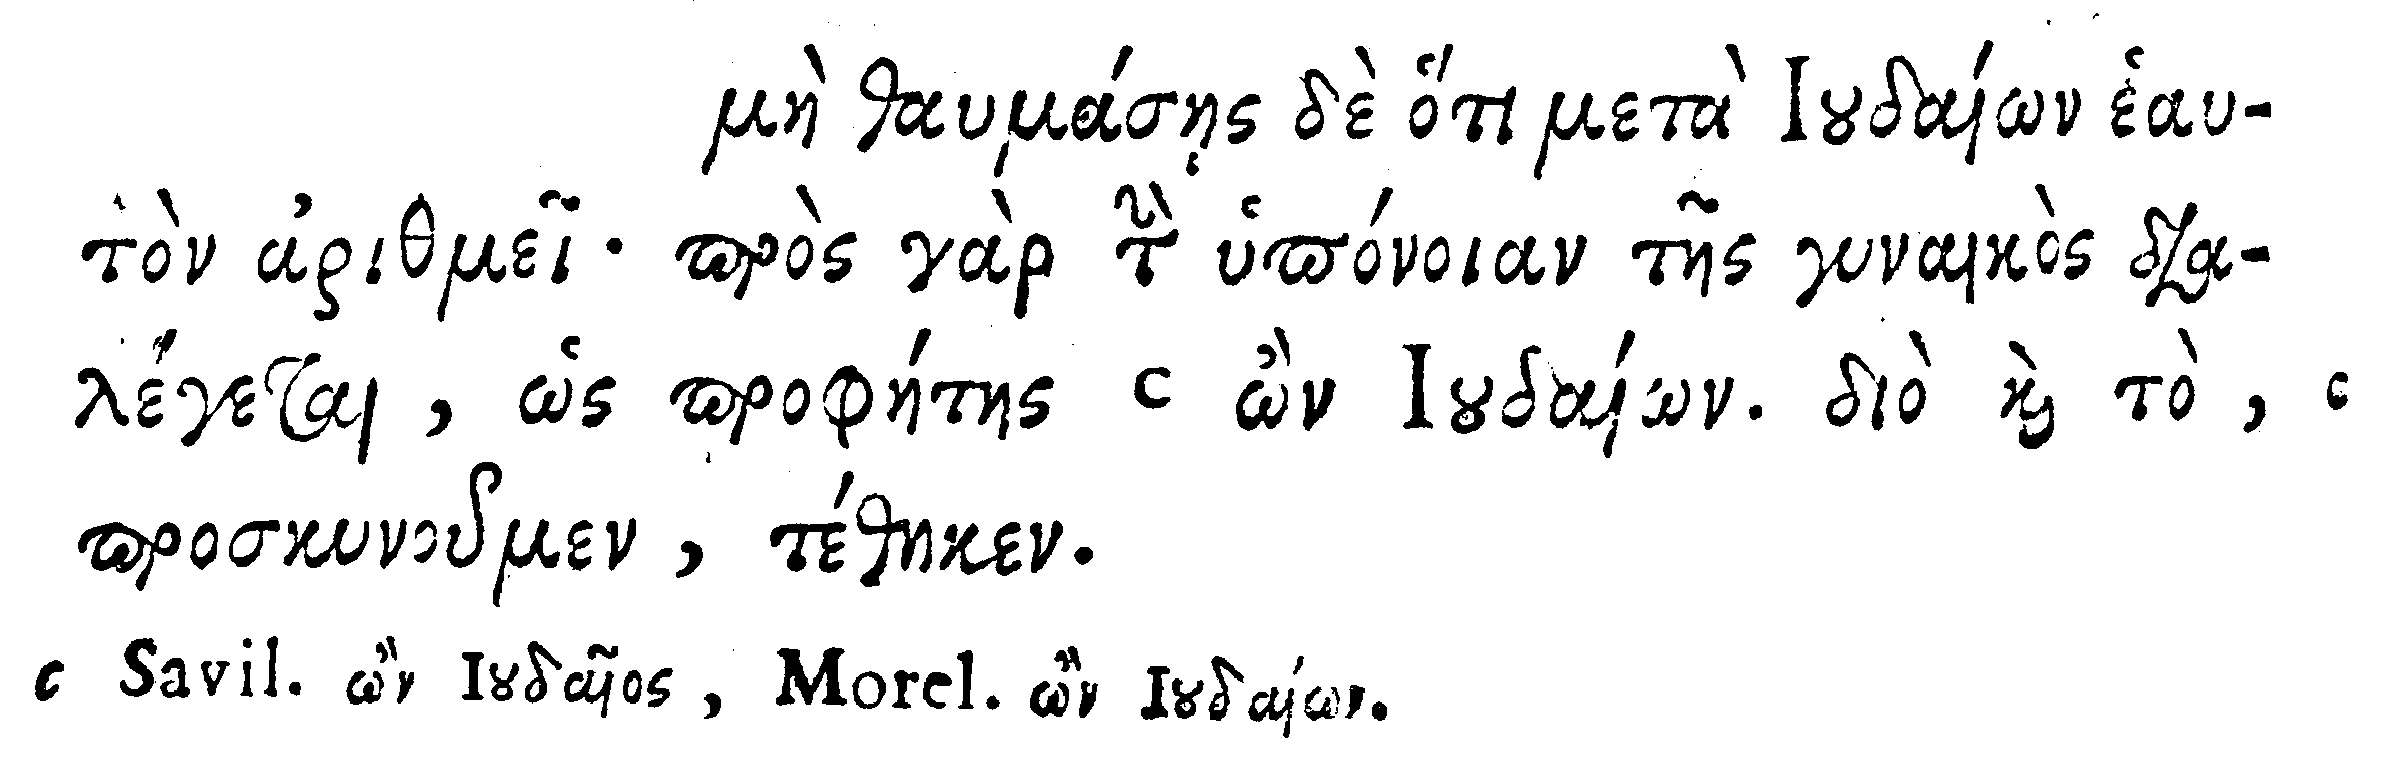 μὴ θαυμάσῃς δὲ ὅτι μετὰ Ιουδαίων ἑαυ-
τὸν ἀριθμεῖ· πρὸς γὰρ τὴν ὑπόνοιαν τῆς γυναικὸς δια-
λέγεται, ὡς προφήτης c ὢν Ιουδαίων. διὸ καὶ τὸ, c
προσκυνοῦμεν, τέθηκεν.
c Savil. ὢν Ιουδαῖος, Morel. ὢν Ιουδαίων.